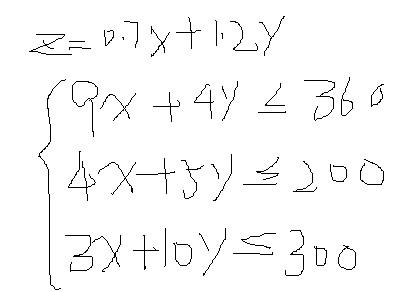 z=0.7x+1.2y
9x+4y≤360
4x+5y≤200
3x+10y≤300